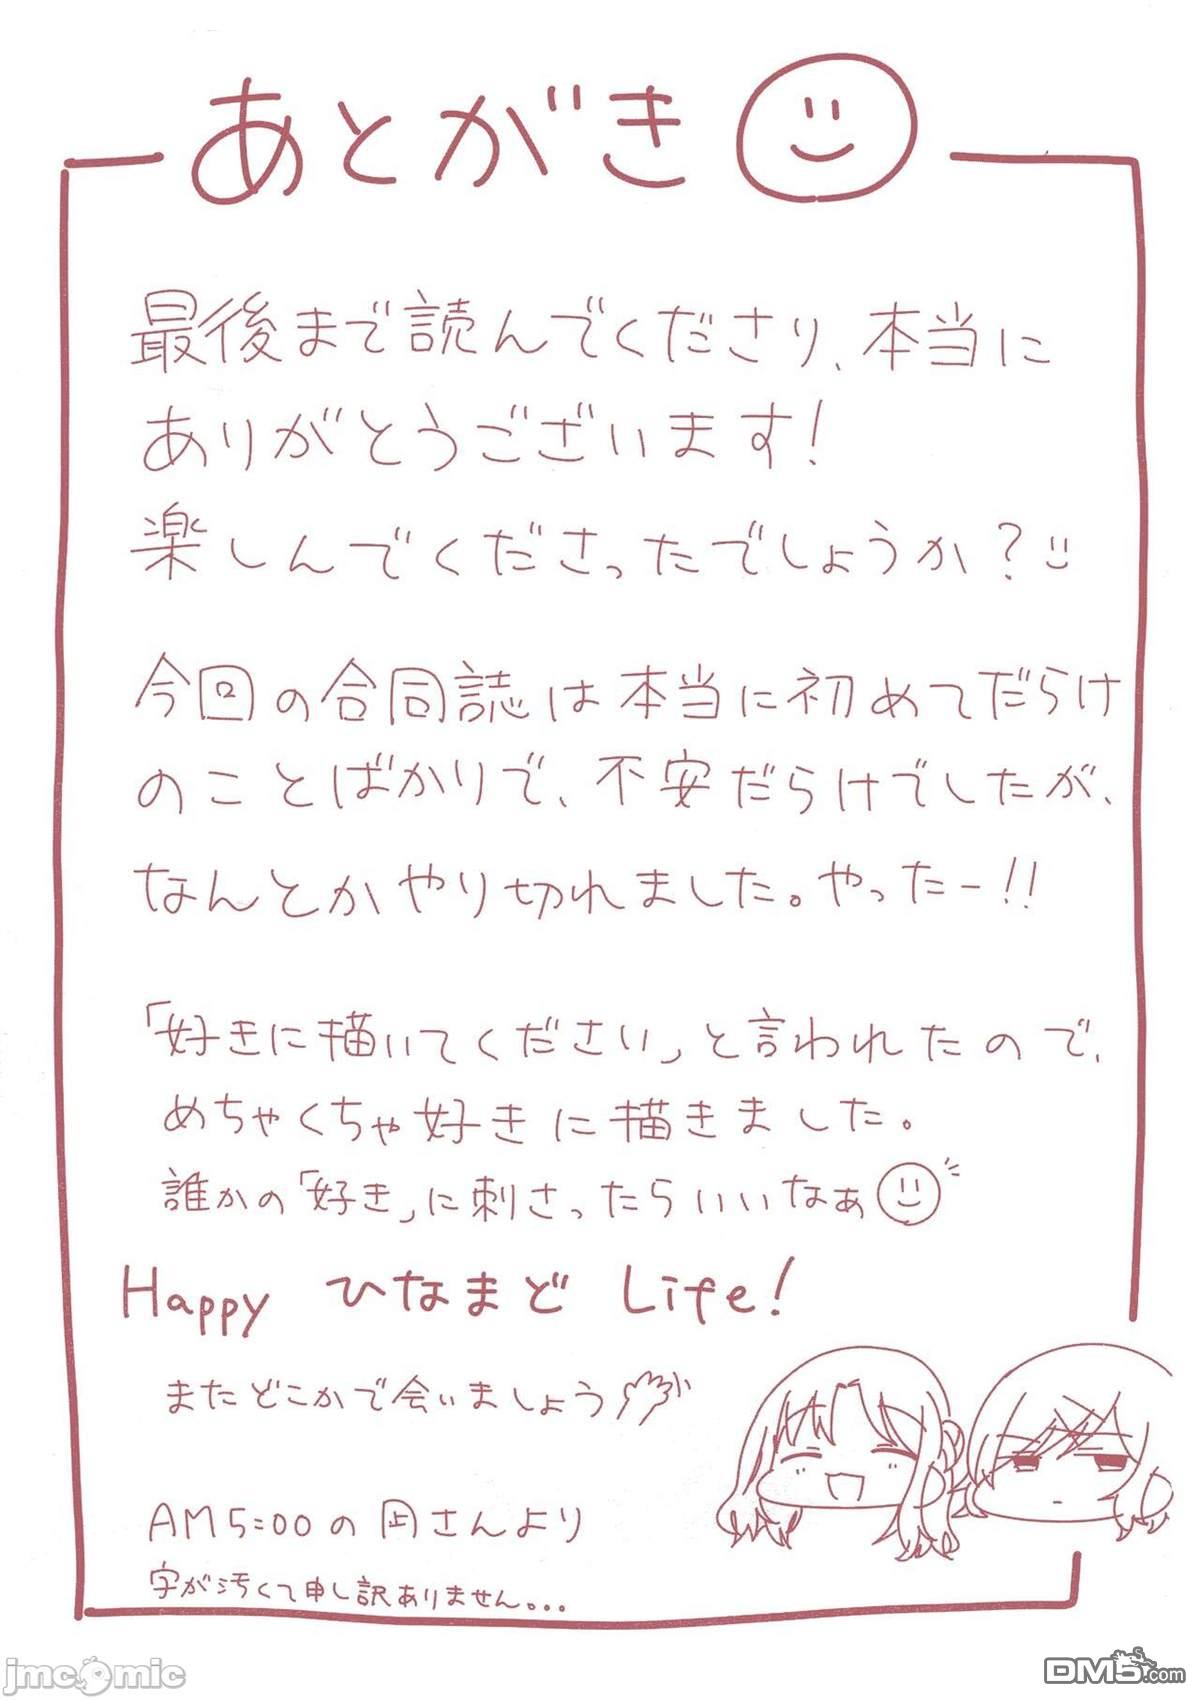 あとがき
最後まで読んでくださり、本当に
ありがとうございます!
楽しんでくださったでしょうか?
今回の合同誌は本当に初めてだらけ
のことばかりで、不安だらけでしたが、
なんとかやり切れました。やったー!!
「好きに描いてください」と言われたので、
めちゃくちゃ好きに描きました。
誰かの「好き」に刺さったらいいなぁ
Happy ひなまど Life!
またどこかで会いましょう
AM5:00の岡さんより
字が汚くて申し訳ありません...
jmcomic
DM5.com